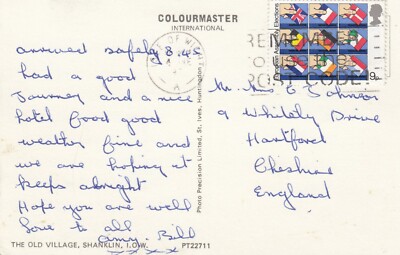 COLOURMASTER
INTERNATIONAL
arrived safely 8.45
had a good
Journey and a nice
hotel Food good
weather fine and
we are hoping it
keeps alright
Hope you are well
love to all
amy. Bill
xxxx
THE OLD VILLAGE, SHANKLIN, I.O.W. PT22711
Photo Precision Limited, St. Ives, Huntingdon
REMEMBER
TO USE THE
POST CODE
9
Mr. Mrs E Johnson
9 Whitely Drive
Hartford
Cheshire
England